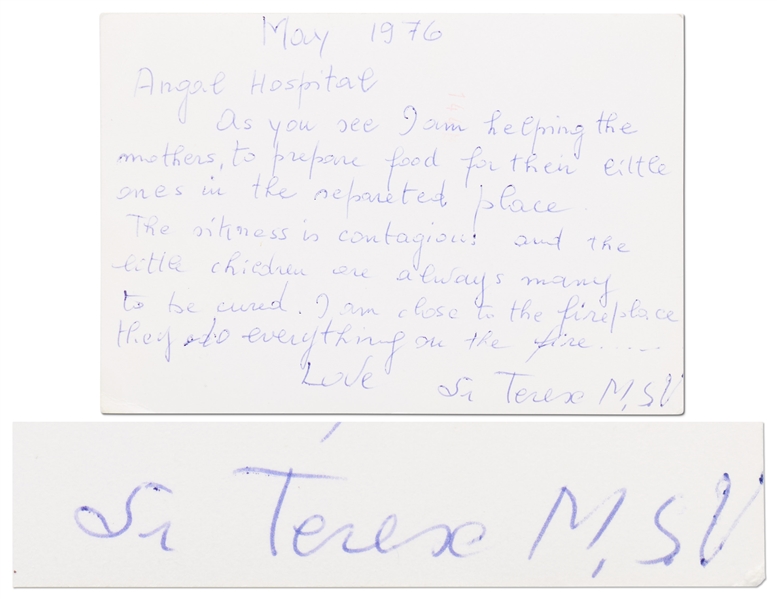 May 1976
Angal Hospital
As you see I am helping the
mothers, to prepare food for their little
ones in the separeted place.
The sikness is contagious and the
little children are always many
to be cured. I am close to the fireplace
they do everything on the fire.....
Love Sr Terese M,SV
Sr Terese M,SV